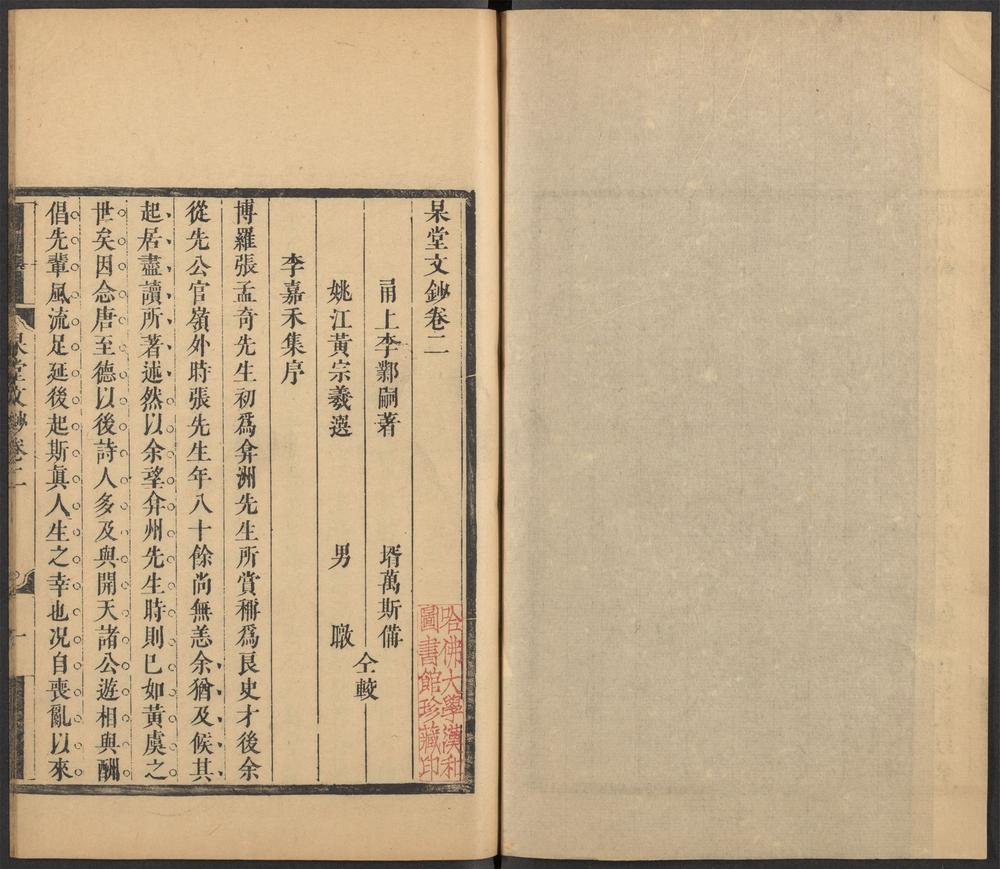 杲堂文鈔卷二
甬上李鄴嗣著
壻萬斯備
姚江黃宗羲選
男 暾
仝較
李嘉禾集序
博羅張孟奇先生初爲弇洲先生所賞稱爲良史才後余
從先公官嶺外時張先生年八十餘尚無恙余猶及候其
起居盡讀所著述然以余望弇州先生時則已如黃虞之
世矣因念唐至德以後詩人多及與開天諸公遊相與酬
倡先輩風流足延後起斯眞人生之幸也况自喪亂以來
杲堂文鈔卷二
一
哈佛大學漢和
圖書館珍藏印